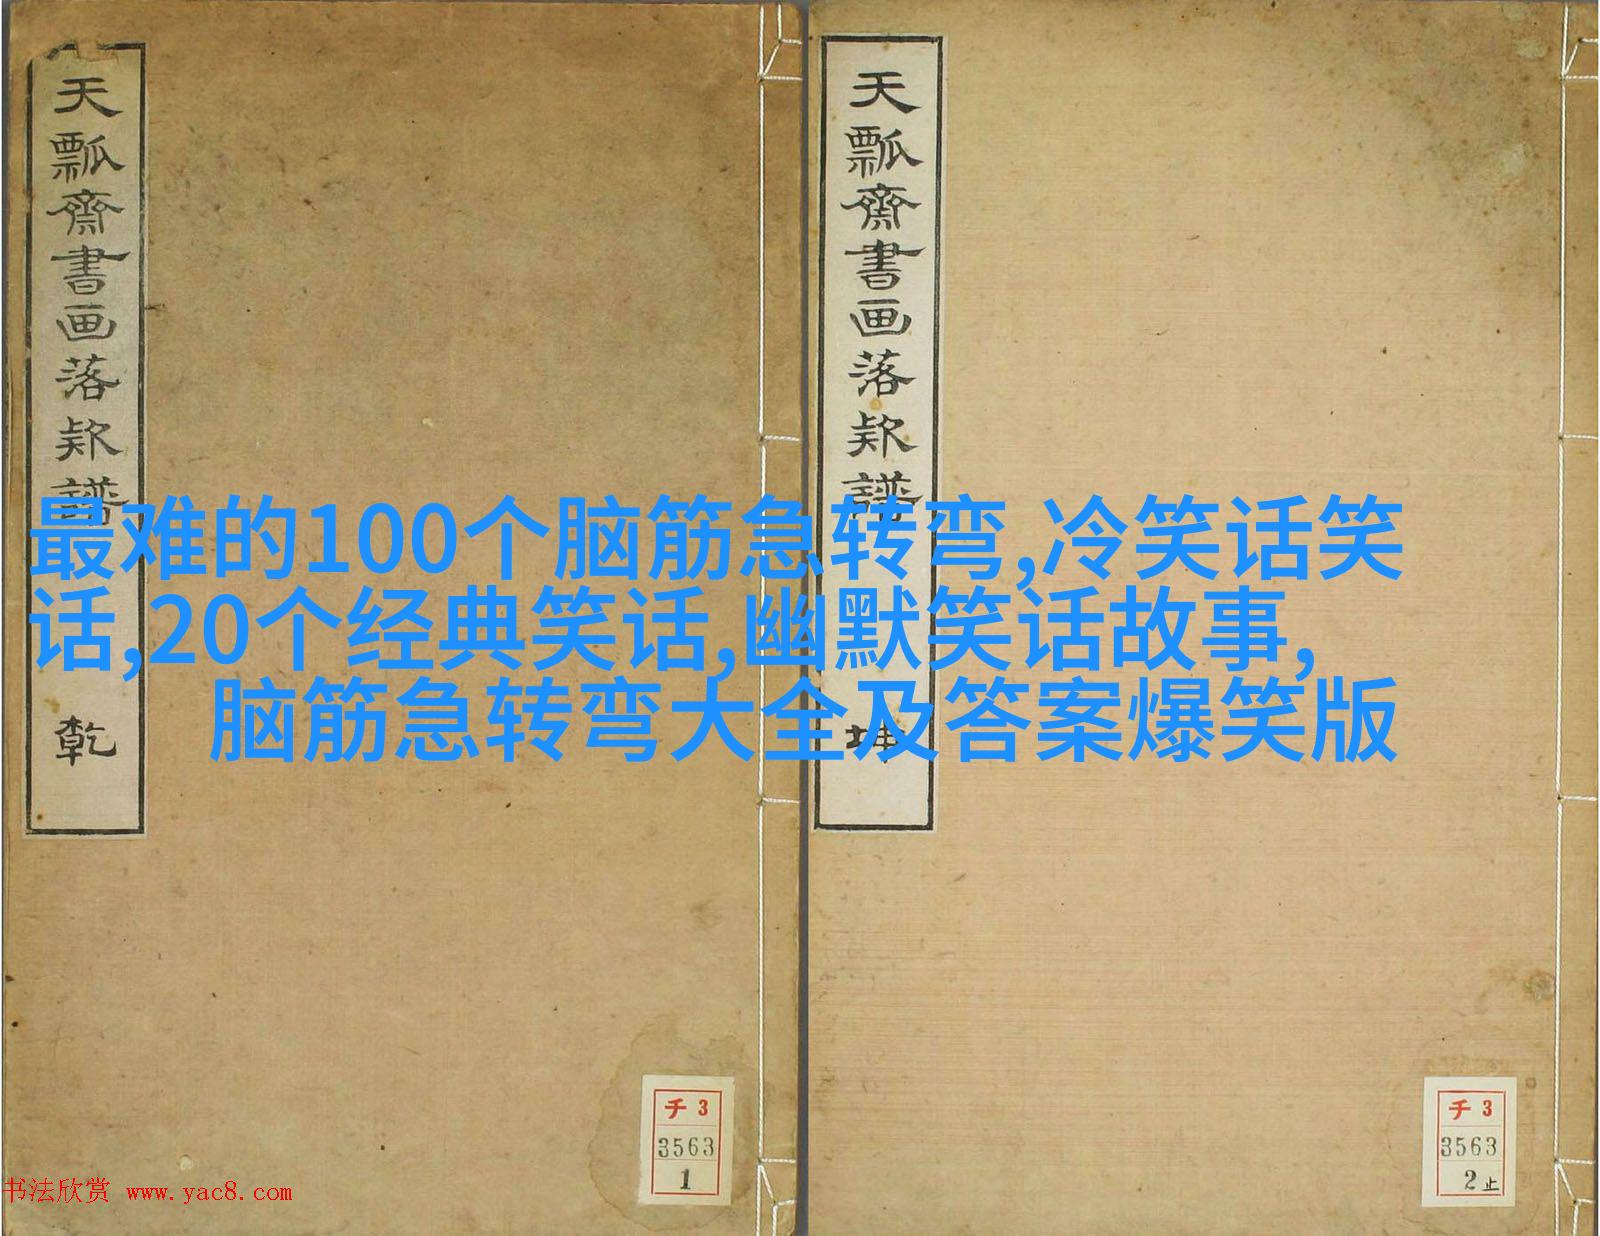 天瓢齋書画落欵譜
乾
天瓢齋書画落欵譜
坤
最难的100个脑筋急转弯,冷笑话笑
话,20个经典笑话,幽默笑话故事,
脑筋急转弯大全及答案爆笑版
チ3
3563
1
チ3
3563
2止
书法欣赏 www.yac8.com